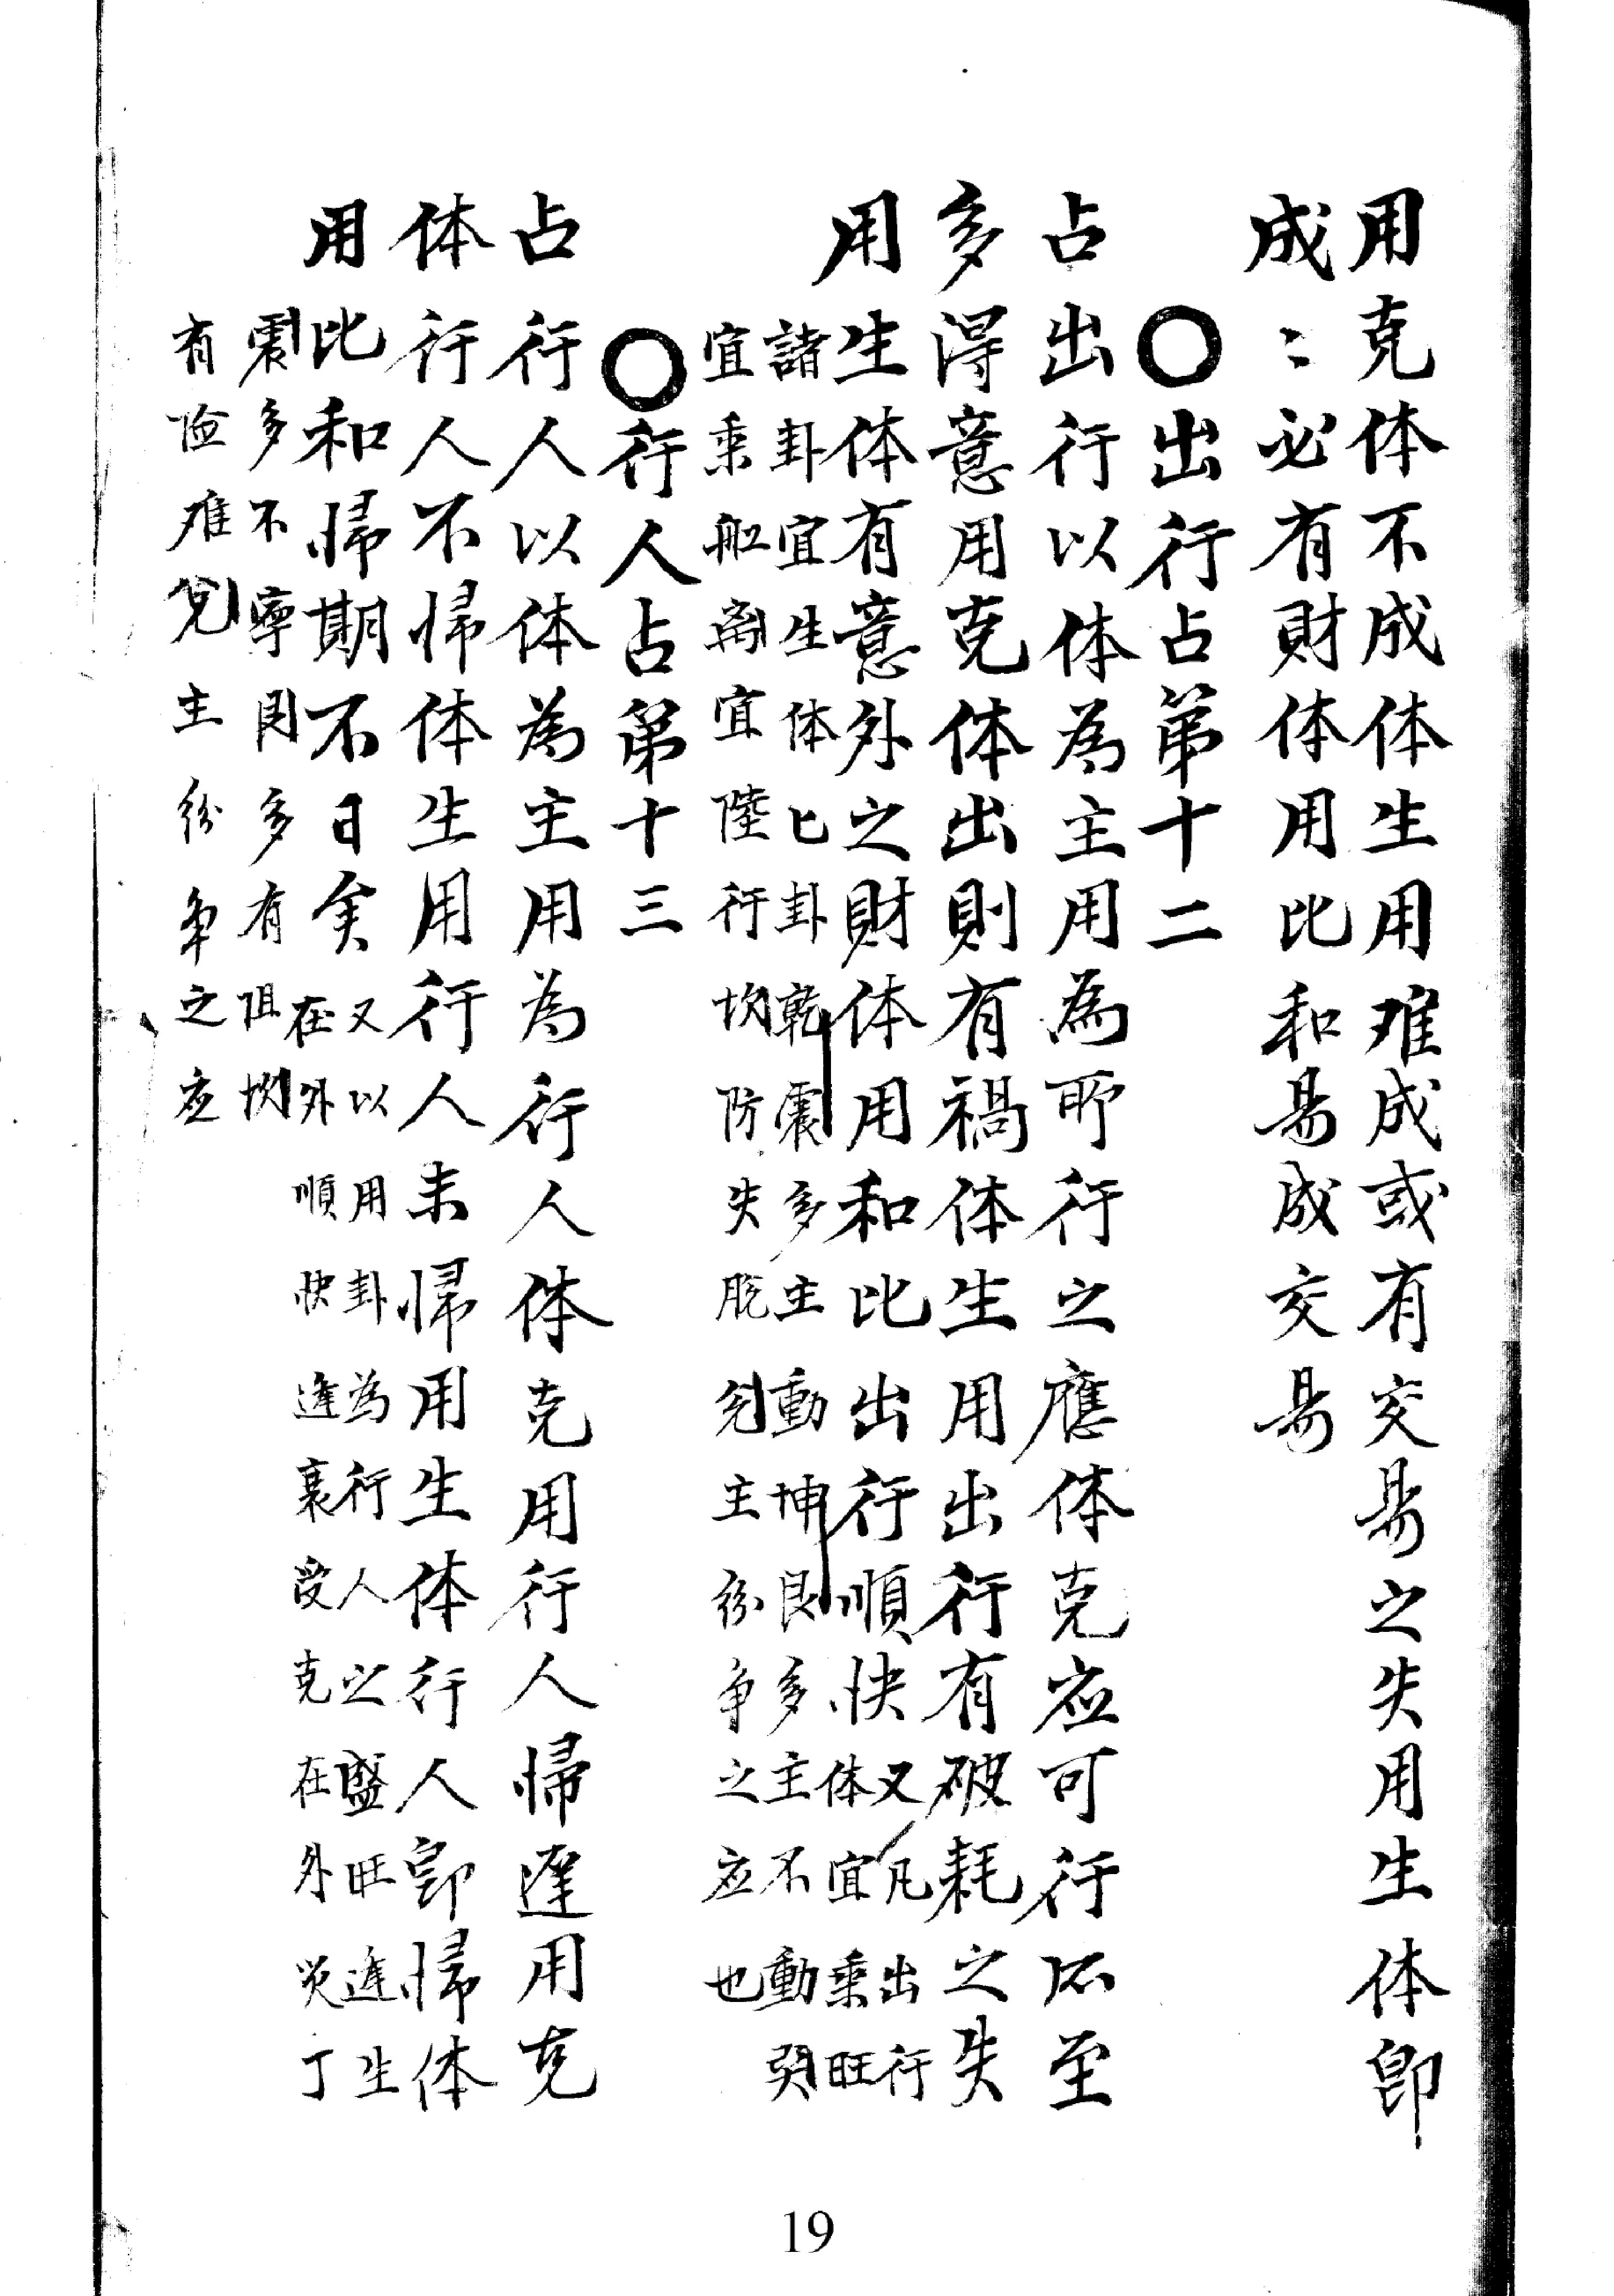 用克体不成体生用难成或有交易之失用生体即
成〻必有財体用比和易成交易
〇出行占第十二
占出行以体為主用為所行之應体克应可行所至
多得意用克体出則有禍体生用出行有破耗之失
用生体有意外之財体用和比出行順快又凡出行
体宜乗旺
諸卦宜生体匕卦乾震多主動坤艮多主不動巽
宜乗船离宜陸行坎防失脱兑主紛争之应也
〇行人占第十三
占行人以体為主用為行人体克用行人帰遲用克
体行人不帰体生用行人未帰用生体行人即帰体
用比和帰期不日矣又以用卦為行人之盛旺逢生
在外順快逢衰受克在外災丁
震多不寧艮多有阻坎
有险难兑主紛争之应
19